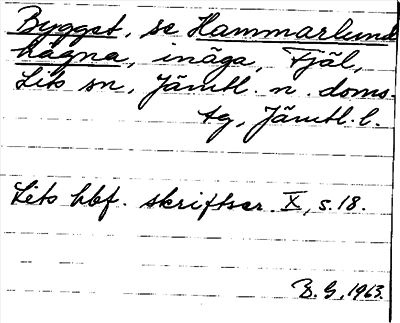 Bygget, se Hammarlund
hägna, inäga, Fjäl,
Lits sn, Jämtl. n. doms.
tg, Jämtl. l.
Lits hbf. skriftser. X, s. 18.
B. G, 1963.